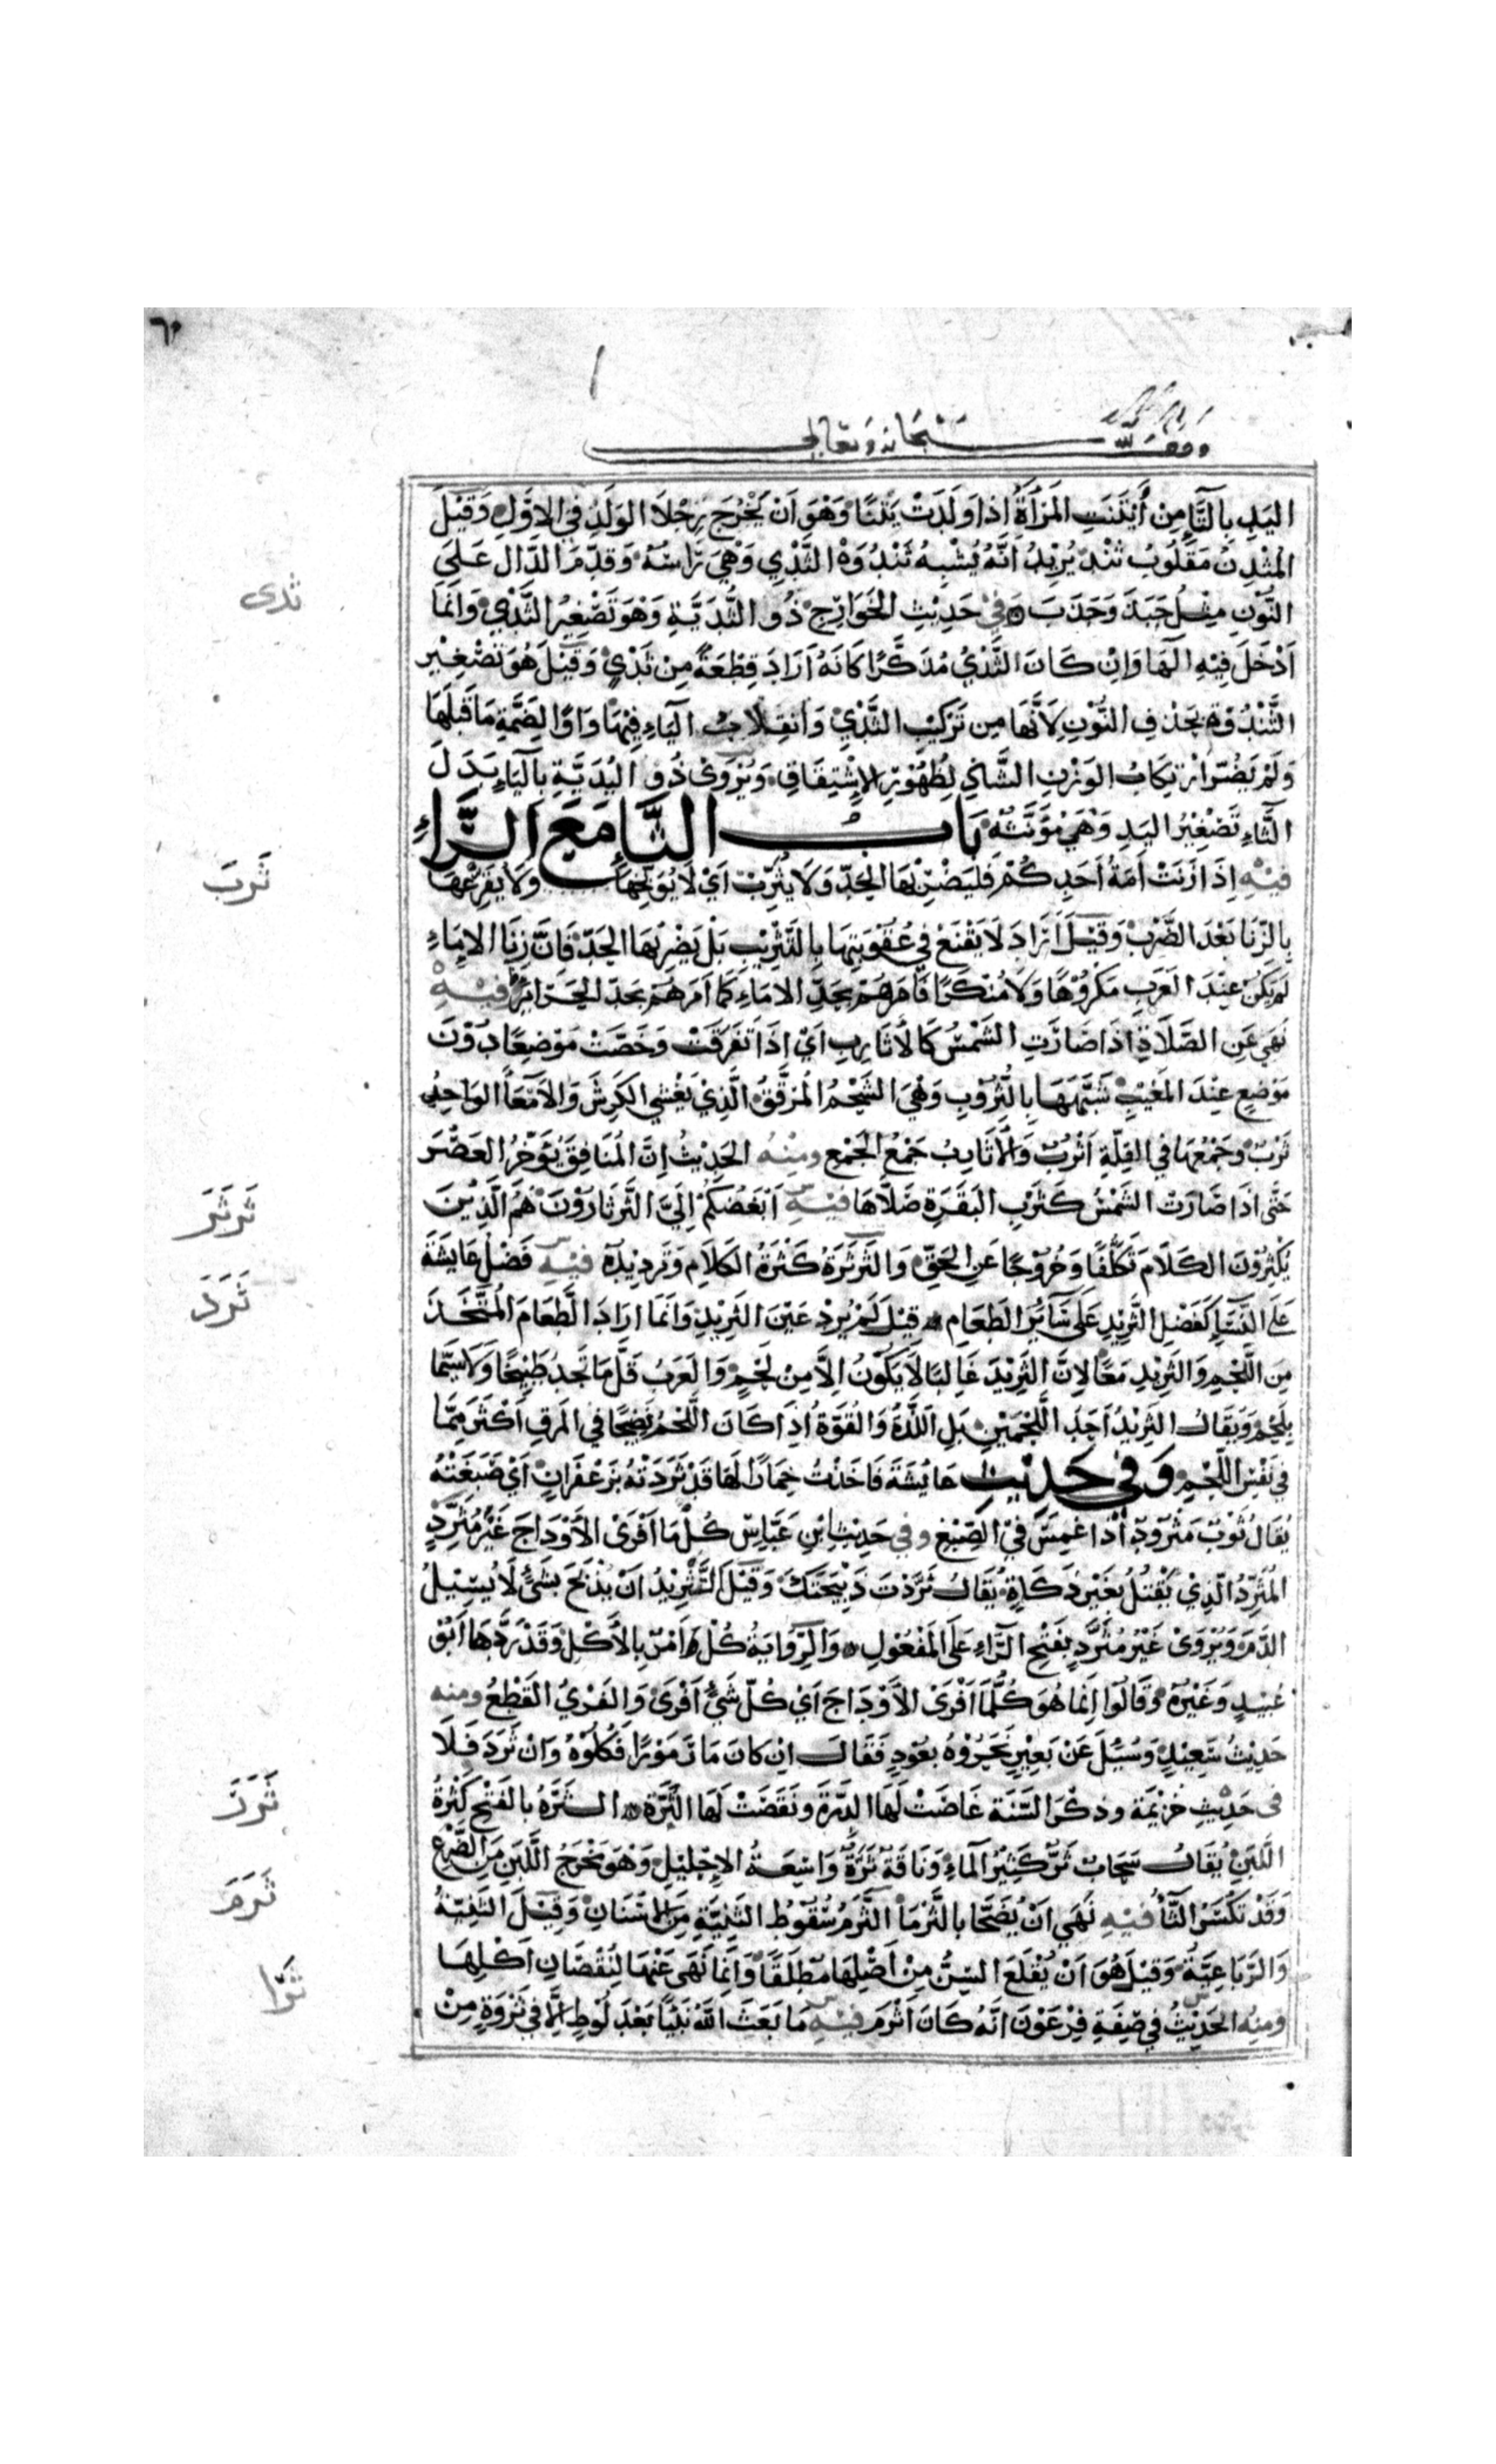 ٦٠
وقف لله سبحانه وتعالى
اليَدِ بِالتَّاءِ مِنْ أَيْتَنَتِ المَرْأَةُ إِذَا وَلَدَتْ يَتْنًا وَهُوَ أَنْ يَخْرُجَ رِجْلَا الوَلَدِ فِي الأَوَّلِ وَقِيْلَ
المُثَدَّنُ مَقْلُوبُ ثُنَدٍ يُرِيْدُ أَنَّهُ يُشْبِهُ ثُنْدُوَةَ الثَّدْيِ وَهِيَ رَأْسُهُ وَقَدَّمَ الدَّالَ عَلَى
ثدى
النُّونِ مِثْل جَبَذَ وَجَذَبَ وَفِي حَدِيْثِ الخَوَارِجِ ذُو الثُّدَيَّةِ وَهُوَ تَصْغِيْرُ الثَّدْيِ وَانَّمَا
أَدْخَلَ فِيْهِ الهَا وَإِنْ كَانَ الثَّدْيُ مُذَكَّرًا كَأَنَّهُ أَرَادَ قِطْعَةً مِنْ ثَدْيٍ وَقِيْلَ هُوَ تَصْغِيْر
الثَّنْدُوَةِ بِحَذْفِ النُّوْنِ لِأَنَّهَا مِن تَرْكِيْبِ الثَّدْيِ وَانْقِلَابُ اليَاءِ فِيْهَا وَاوًا لِضَمَّةِ مَا قَبْلَهَا
وَلَمْ يَضُرَّ ارْتِكَابُ الوَزْنِ الشَّاذِّ لِظُهُوْرِ الاِشْتِقَاقِ وَيُرْوَى ذُو اليُدَيَّةِ بِاليَاءِ بَدَلَ
الثَّاءِ تَصْغِيْرُ اليَدِ وَهِيَ مُؤَنَّثَةٌ بَابُ الثَّا مَعَ الرَّاءِ
ثَرَبَ
فِيْهِ إِذَا زَنَتْ أَمَةُ أَحَدِكُمْ فَلْيَضْرِبْهَا الحَدَّ وَلَا يُثَرِّبْ أَيْ لَا يُوَبِّخْهَا وَلَا يُقَرِّعْهَا
بِالزِّنَا بَعْدَ الضَّرْبِ وَقِيْلَ أَرَادَ لَا يَقْنَعْ فِي عُقُوْبَتِهَا بِالتَّثْرِيْبِ بَلْ يَضْرِبُهَا الحَدَّ فَإِنَّ زِنَا الإِمَاءِ
لَمْ يَكُنْ عِنْدَ العَرَبِ مَكْرُوْهًا وَلَا مُنْكَرًا فَأَمَرَهُمْ بِحَدِّ الامَاءِ كَمَا أَمَرَهُمْ بِحَدِّ الحَرَائِرِ فِيْهِ
نَهَى عَنِ الصَّلَاةِ إِذَا صَارَتِ الشَّمْسُ كَالأَثَارِبِ أَيْ إِذَا تَفَرَّقَتْ وَخَصَّتْ مَوْضِعًا دُوْنَ
مَوْضِعٍ عِنْدَ المَغِيْبِ شَبَّهَهَا بِالثُّرُوْبِ وَهِيَ الشَّحْمُ المُرَقَّقُ الَّذِيْ يَغْشَى الكَرِشَ وَالأَمْعَاءَ الوَاحِدُ
ثَرْبٌ وَجَمْعُهَا فِي القِلَّةِ أَثْرُبٌ وَالأَثَارِبُ جَمْعُ الجَمْعِ ومِنْهُ الحَدِيْثُ إِنَّ المُنَافِقَ يُؤَخِّرُ العَصْرَ
ثَرثَرَ
حَتَّى إِذَا صَارَتْ الشَّمْسُ كَثَرْبِ البَقَرَةِ صَلَّاهَا فِيْهِ أَبْغَضُكُمْ إِلَيَّ الثَّرْثَارُوْنَ هُمُ الَّذِيْنَ
ثَرَدَ
يُكْثِرُوْنَ الكَلَامَ تَكَلُّفًا وَخُرُوْجًا عَنِ الحَقِّ وَالثَّرْثَرَةُ كَثْرَةُ الكَلَامِ وَتَرْدِيْدُهُ فِيْهِ فَضْلُ عَايشَةَ
عَلَى النِّسَاءِ كَفَضْلِ الثَّرِيْدِ عَلَى سَائِرِ الطَّعَامِ قِيْلَ لَمْ يُرِدْ عَيْنَ الثَّرِيْدِ وَانَّمَا ارَادَ الطَّعَامَ المُتَّخَذَ
مِنَ اللَّحْمِ وَالثَّرِيْدِ مَعًا لِانَّ الثَّرِيْدَ غَالِبًا لَا يَكُوْنُ الاَّ مِنْ لَحْمٍ وَالعَرَبُ قَلَّ مَا تَجِدُ طَبِيْخًا وَلَا سِيَّمَا
بِلَحْمٍ وَيُقَالُ الثَّرِيْدُ أَحَدُ اللَّحْمَيْنِ بَلِ اللَّذَّةُ وَالقُوَّةُ إِذَا كَانَ اللَّحْمُ نَضِيْجًا فِي المَرَقِ أَكْثَرُ مِمَّا
فِي نَفْسِ اللَّحْمِ وَفِي حَدِيْثِ عَائِشَةَ فَأَخَذْتُ خِمَارًا لَهَا قَدْ ثَرَدَتْهُ بِزَعْفَرَانٍ أَيْ صَبَغَتْهُ
يُقَالُ ثَوْبٌ مَثْرُوْدٌ إِذَا غُمِسَ فِي الصِّبْغِ وفي حَدِيْثِ ابْنِ عَبَّاسٍ كُلْ مَا أَفْرَى الأَوْدَاجَ غَيْرُ مُثَرِّدٍ
المُثَرِّدُ الَّذِيْ يَقْتُلُ بِغَيْرِ ذَكَاةٍ يُقَالُ ثَرَّدْتَ ذَبِيْحَتَكَ وَقِيْلَ التَّثْرِيْدُ أَنْ يَذْبَحَ بِشَيْءٍ لَا يُسِيْلُ
الدَّمَ وَيُرْوَى غَيْرُ مُثَرَّدٍ بِفَتْحِ الرَّاءِ عَلَى المَفْعُوْلِ وَالرِّوَايَةُ كُلْ أَمْرٌ بِالأَكْلِ وَقَدْ رَدَّهَا أَبُو
عُبَيْدٍ وَغَيْرُهُ وَقَالُوا إِنَّمَا هُوَ كُلُّ مَا أَفْرَى الأَوْدَاجَ أَيْ كُلّ شَيْءٍ أَفْرَى وَالفَرْيُ القَطْعُ ومنه
حَدِيْثُ سَعِيْدٍ وَسُئِلَ عَنْ بَعِيْرٍ نَحَرُوْهُ بِعُوْدٍ فَقَالَ انْ كَانَ مَارَ مَوْرًا فَكُلُوْهُ وَانْ ثَرَدَ فَلَا
ثَرَرَ
فى حَدِيْثِ خُزَيْمَة وذكْرَ السَّنَة غَاضَتْ لَهَا الدِّرَةَ وَنَقَصَتْ لَهَا الثَّرَّة الثَّرَّةُ بِالفَتْحِ كَثْرَةُ
اللَّبَنِ يُقَالُ سَحَابٌ ثَرٌّ كَثِيْرُ المَاءِ وَنَاقَةٌ ثَرَّةٌ وَاسِعَةُ الإِحْلِيْلِ وَهُوَ مَخْرَجُ اللَّبَنِ مِنَ الضَّرْعِ
ثَرَمَ
وَقَدْ تُكْسَرُ الثَّاءُ فِيْهِ نَهَى أَنْ يُضَحَّا بِالثَّرْمَاءِ الثَّرَمُ سُقُوْطُ الثَّنِيَّةِ مِنَ الاسْنَانِ وَقِيْلَ الثَّنِيَّةُ
ثَرَا
وَالرَّبَاعِيَّةُ وَقِيْلَ هُوَ أَنْ يُقْلَعَ السِّنُّ مِنْ أَصْلِهَا مُطْلَقًا وَانَّمَا نَهَى عَنْهَا لِنُقْصَانِ أَكْلِهَا
ومِنْهُ الحَدِيْثُ فِي صِفَةِ فِرْعَوْنَ انَّهُ كَانَ أَثْرَمَ فِيْهِ مَا بَعَثَ اللهُ نَبِيًّا بَعْدَ لُوْطٍ إِلَّا فِي ثَرْوَةٍ مِنْ